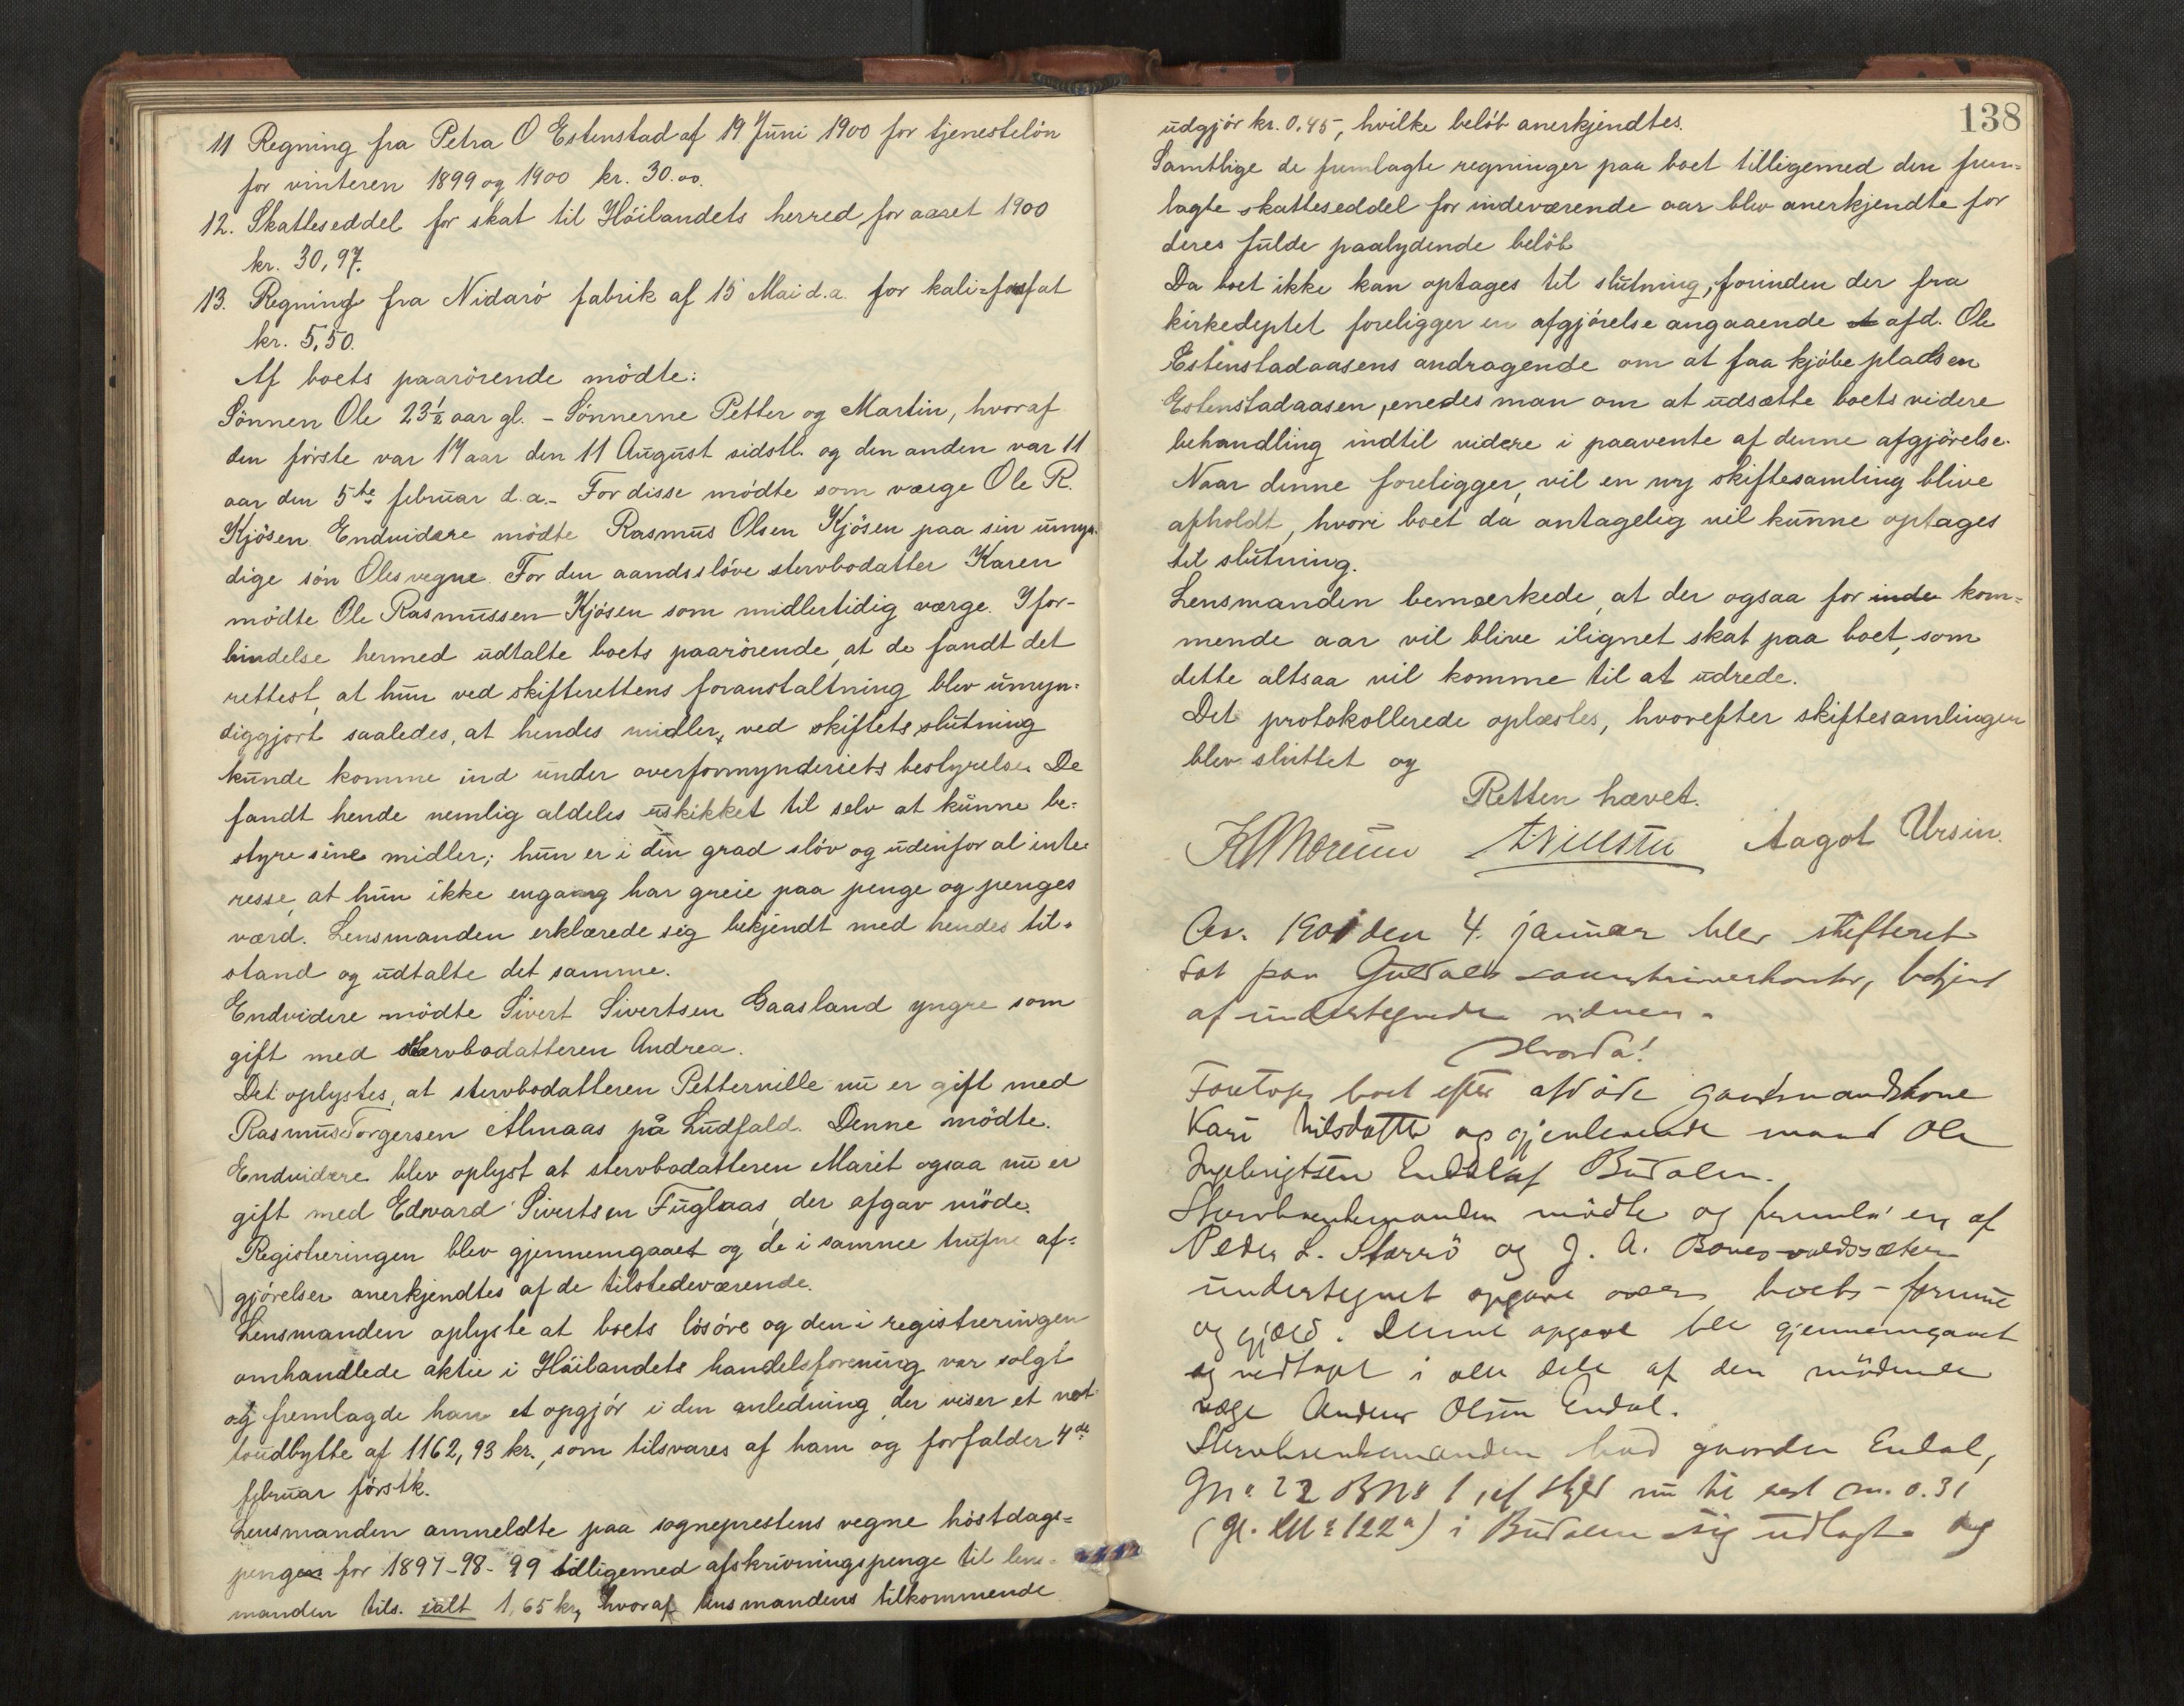 11 Regning fra Petra O Estenstad af 19 Juni 1900 for tjenesteløn
for vinteren 1899 og 1900 kr. 30.00.
12. Skatteseddel for skat til Höilandets herred for aaret 1900
kr. 30,97.
13. Regning fra Nidarö fabrik af 15 Mai d.a. for kali-fosfat
kr. 5,50.
Af boets paarörende mödte:
Sönnen Ole 23½ aar gl. - Sönnerne Petter og Martin, hvoraf
den förste var 17 aar den 11 August sidstl. og den anden var 11
aar den 5te februar d.a. - For disse mödte som værge Ole R.
Kjösen. Endvidere mödte Rasmus Olsen Kjösen paa sin umyn-
dige sön Oles vegne. For den aandsslöve stervbodatter Karen
mödte Ole Rasmussen Kjösen som midlertidig værge. I for-
bindelse hermed udtalte boets paarörende, at de fandt det
rettest, at hun ved skifterettens foranstaltning blev umyn-
diggjort saaledes, at hendes midler, ved skiftets slutning
kunde komme ind under overformynderiets bestyrelse. De
fandt hende nemlig aldeles uskikket til selv at kunne be-
styre sine midler; hun er i den grad slöv og udenfor al inte-
resse, at hun ikke engang har greie paa penge og penges
værd. Lensmanden erklærede sig bekjendt med hendes til-
stand og udtalte det samme.
Endvidere mödte Sivert Sivertsen Gaasland yngre som
gift med stervbodatteren Andrea.
Det oplystes, at stervbodatteren Petternille nu er gift med
Rasmus Torgersen Almaas på Ludfald. Denne mödte.
Endvidere blev oplyst at stervbodatteren Marit ogsaa nu er
gift med Edvard Sivertsen Fuglaas, der afgav möde.
Registreringen blev gjennemgaaet og de i samme trufne af-
gjörelser anerkjendtes af de tilstedeværende.
Lensmanden oplyste at boets lösöre og den i registreringen
omhandlede aktie i Höilandets handelsforening var solgt
og fremlagde han et opgjör i den anledning, der viser et net-
toudbytte af 1162,93 kr., som tilsvares af ham og forfalder 4de
februar förstk.
Lensmanden anmeldte paa sogneprestens vegne höstdags-
penge for 1897-98-99 tilligemed afskrivningspenge til lens-
manden tils. ialt 1,65 kr., hvoraf lensmandens tilkommende
138
udgjör kr. 0,45, hvilke belöb anerkjendtes.
Samtlige de fremlagte regninger paa boet tilligemed den frem-
lagte skatteseddel for indeværende aar blev anerkjendte for
deres fulde paalydende belöb
Da boet ikke kan optages til slutning, forinden der fra
kirkedeptet foreligger en afgjörelse angaaende afd. Ole
Estenstadaasens andragende om at faa kjöbe pladsen
Estenstadaasen, enedes man om at udsætte boets videre
behandling indtil videre i paavente af denne afgjörelse.
Naar denne foreligger, vil en ny skiftesamling blive
afholdt, hvori boet da antagelig vil kunne optages
til slutning.
Lensmanden bemærkede, at der ogsaa for inde kom-
mende aar vil blive ilignet skat paa boet, som
dette altsaa vil komme til at udrede.
Det protokollerede oplæstes, hvorefter skiftesamlingen
blev sluttet og
Retten hævet.
Aagot Ursin.
Aar 1901 den 4. januar blev skifteret
sat paa Guldals sorenskriverkontor, betjent
af undertegnede vidner.
Hvorda!
Foretoges boet efter afdöde gaardmandskone
Kari Nilsdatter og gjenlevende mand Ole
Ingebrigtsen Endal af Budalen.
Stervboenkemanden mödte og fremla' en af
Peder L. Storrö og J. A.
undertegnet opgave over boets formue
og gjæld. Denne opgave ble gjennemgaaet
og vedtaget i alle dele af den mödende
værge Anders Olsen Endal.
Stervboenkemanden bad gaarden Endal,
Gn. 22 Bn. 1, af skyld nu til rest m. 0.31
(gl. LN. 122a) i Budalen sig udlagt og